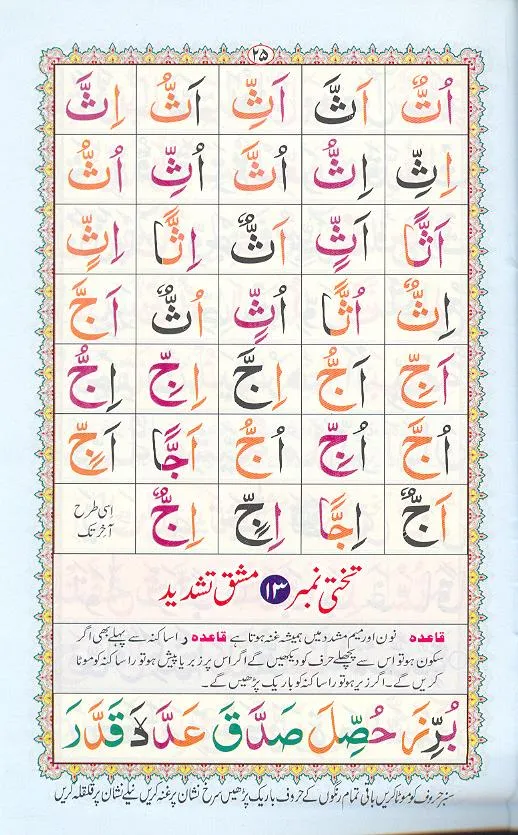 ٢٥
اُتٌّ اَثَّ اَثِّ اَثُّ اِثَّ
اِثِّ اِثُّ اُثَّ اُثِّ اُثُّ
اَثًّا اَثٍّ اَثٌّ اِثًّا اِثٍّ
اِثٌّ اُثًّا اُثٍّ اُثٌّ اَجَّ
اَجِّ اَجُّ اِجَّ اِجِّ اِجُّ
اُجَّ اُجِّ اُجُّ اَجًّا اَجٍّ
اَجٌّ اِجًّا اِجٍّ اِجٌّ اِسی طرح آخر تک
تختی نمبر ١٣ مشق تشدید
قاعدہ نون اور میم مشدد میں ہمیشہ غنہ ہوتا ہے قاعدہ ر اسا کنہ سے پہلے بھی اگر
سکون ہو تو اس سے پچھلے حرف کو دیکھیں گے اگر اس پر زبر یا پیش ہو تو را ساکنہ کو موٹا
کریں گے۔ اگر زیر ہو تو را ساکنہ کو باریک پڑھیں گے۔
بُرِّزَ حُصِّلَ صَدَّقَ قَدَّرَ
سبز حروف کو موٹا کریں باقی تمام رنگوں کے حروف باریک پڑھیں سرخ نشان پر غنہ کریں نیلے نشان پر قلقلہ کریں